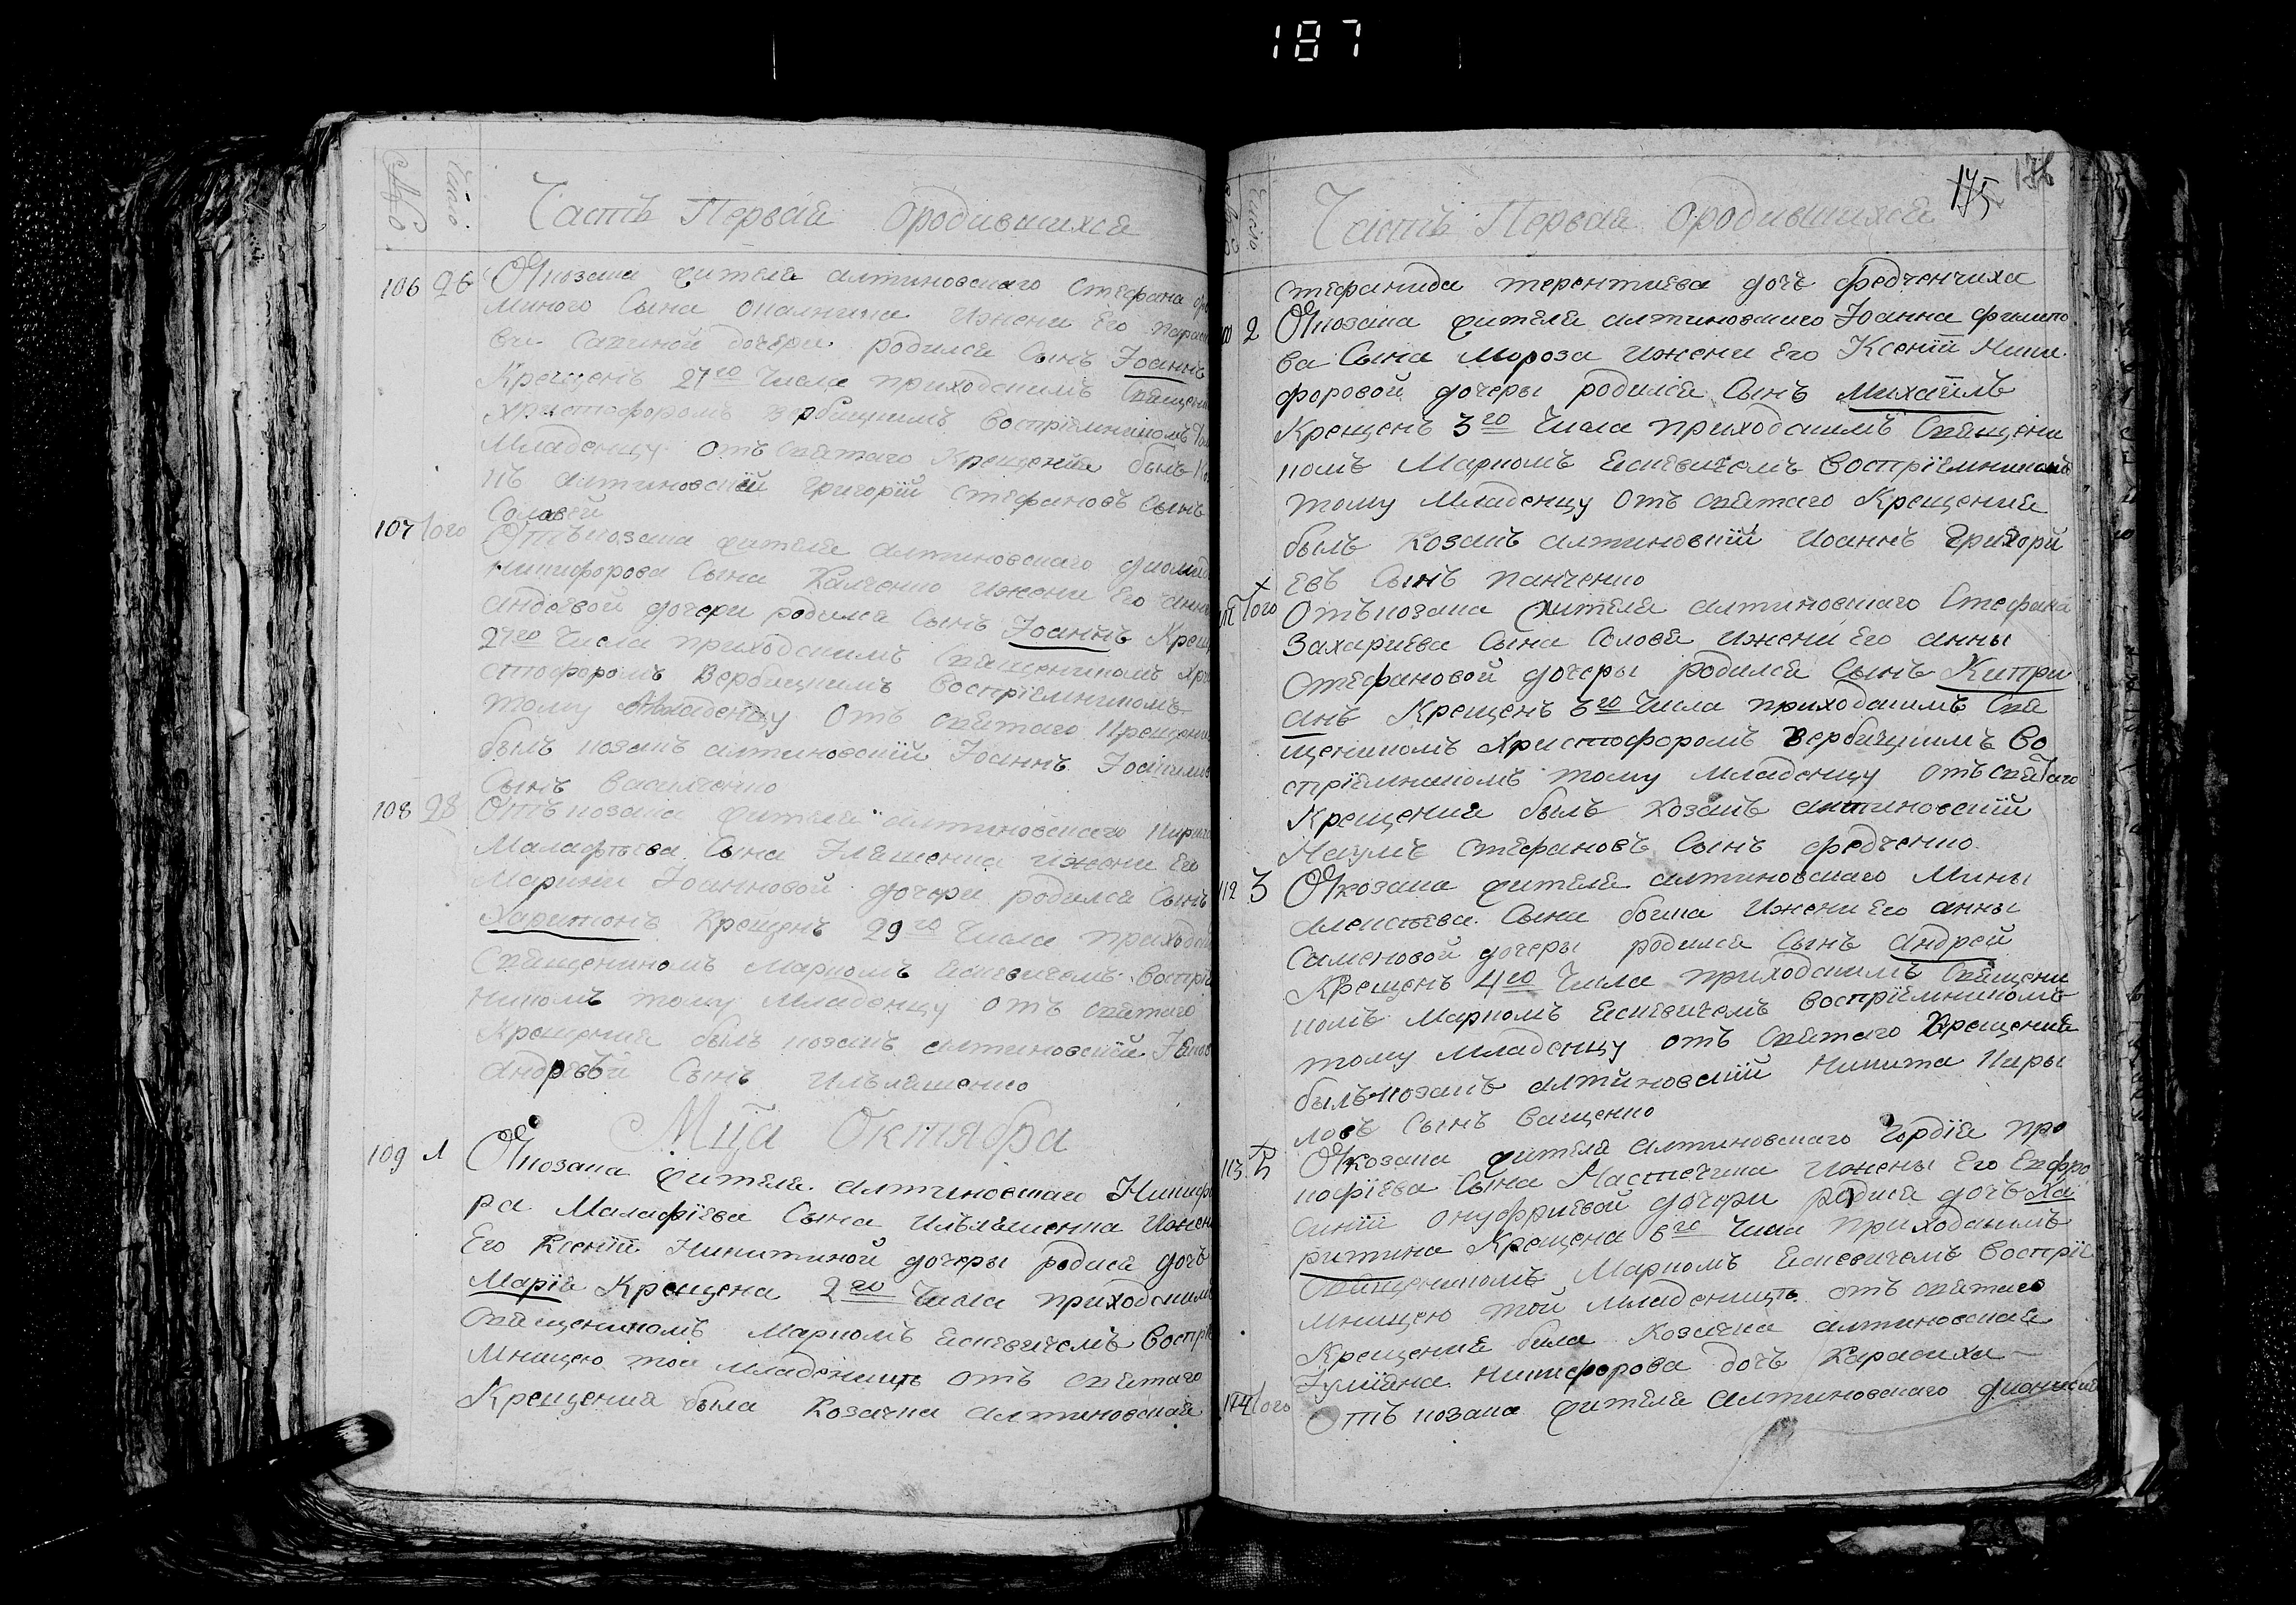 187
№
Число
Часть Первая ородившихся
106 26 От козака жителя алтиновскаго Стефана
много Сына опалника ижени Его
ви Савиной дочери родился Сынъ Іоаннъ
Крещенъ 27го Числа приходскимъ Священ
Христофоромъ Вербицкимъ Воспріемникомъ
Младенцу отъ святаго Крещенія былъ
къ алтиновскій григорій стефановъ Сынъ
Соловей
107 того Отъ козака жителя алтиновскаго
никифорова Сына Калченко ижени Его анни
андеевой дочери родился Сынъ Іоаннъ Крещ
27го Числа приходскимъ Священикомъ Хри
стофоромъ Вербицкимъ Воспріемникомъ
тому Младенцу отъ святаго крещени
былъ козакъ алтиновскій Іоаннъ
Сынъ Василченко
108 28 Отъ козака жителя алтиновскаго
Малафіева Сына Иляшенка ижени Его
Марини Іоанновой дочери родился Сынъ
Харитонъ Крещенъ 29го Числа приход
Священикомъ Маркомъ Ескевичемъ Воспріе
никомъ тому Младенцу отъ святаго
Крещения былъ козакъ алтиновскій
андреевъ Сынъ Ильяшенко
Мца Октября
109 1 От козака жителя алтиновскаго Никифо
ра Малафіева Сына Ильяшенка ижени
Его Ксеніи Никитиной дочеры родися дочь
Марія Крещена 2го Числа приходским
Священикомъ Маркомъ Ескевичемъ Воспріе
мницею той младеницъ отъ святаго
Крещения была Козачка алтиновская
175
176
Число
Часть Первая ородившихся
стефанида терентиева дочь федченчиха
2 От козака жителя алтиновскаго Іоанна филипо
ва Сына Мороза ижени Его Ксеніи Ники
форовой дочеры родился Сынъ Михаилъ
Крещенъ 3го Числа приходскимъ Священи
комъ Маркомъ Ескевичемъ Воспріемникомъ
тому Младенцу отъ святаго Крещения
былъ Козакъ алтиновскій Иоаннъ Григори
евъ Сынъ панченко
того Отъ козака жителя алтиновскаго Стефана
Захариева Сына Соловя ижени Его анны
Стефановой дочеры родился Сынъ Кипри
анъ Крещенъ 3го Числа приходскимъ Свя
щеникомъ Христофоромъ Вербицкимъ Во
спріемникомъ тому младенцу отъ святаго
Крещения былъ Козакъ алтиновскій
Наумъ Стефановъ Сынъ федченко
112 3 От козака жителя алтиновскаго Мины
алексіева Сына бочка ижени Его анны
Саменовой дочеры родился Сынъ андрей
Крещенъ 4го Числа приходскимъ Священи
комъ Маркомъ Ескевичемъ Воспріемникомъ
тому Младенцу отъ святаго Крещения
былъ козакъ алтиновскій Никита Киры
ловъ Сынъ Ващенко
113 5 От козака жителя алтиновскаго Гордія про
кофіева Сына Ижены Его Евфро
синіи онуфриевой дочери родися дочь Ха
ритина Крещена 6го Числа приходскимъ
Священикомъ Маркомъ Ескевичемъ Воспріе
мницею той младеницъ отъ святаго
Крещения била Козачка алтиновская
Іулияна никифорова дочь Карасиха
114 того Отъ козака жителя алтиновскаго